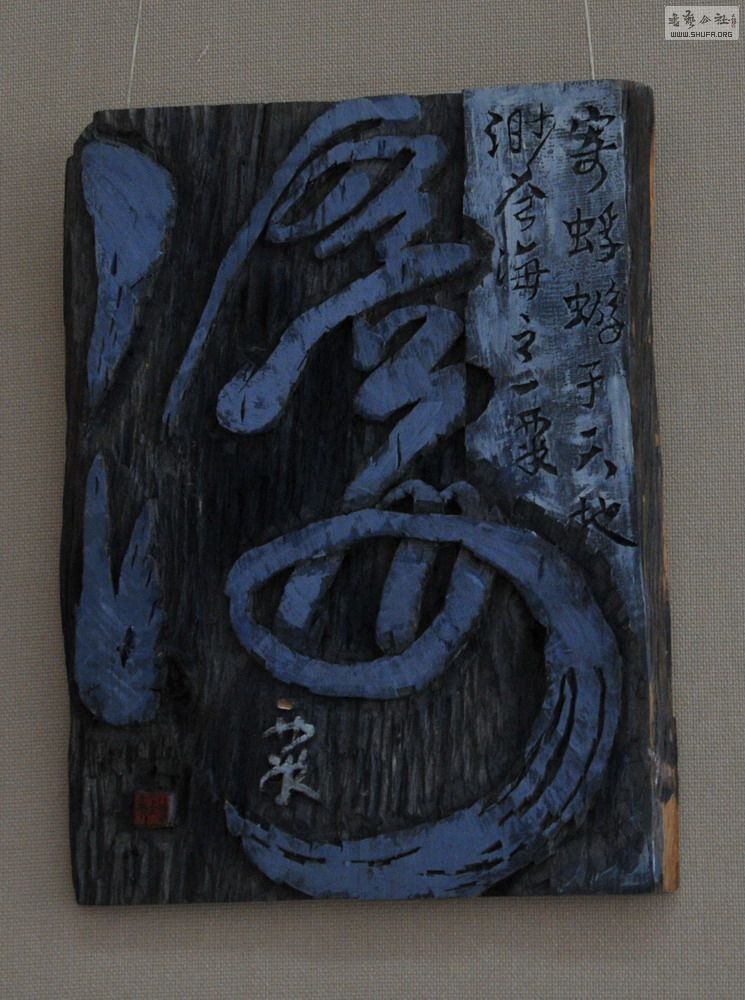 寄蜉蝣于天地
渺沧海之一粟
沧海
粟
书艺公社
WWW.SHUFA.ORG